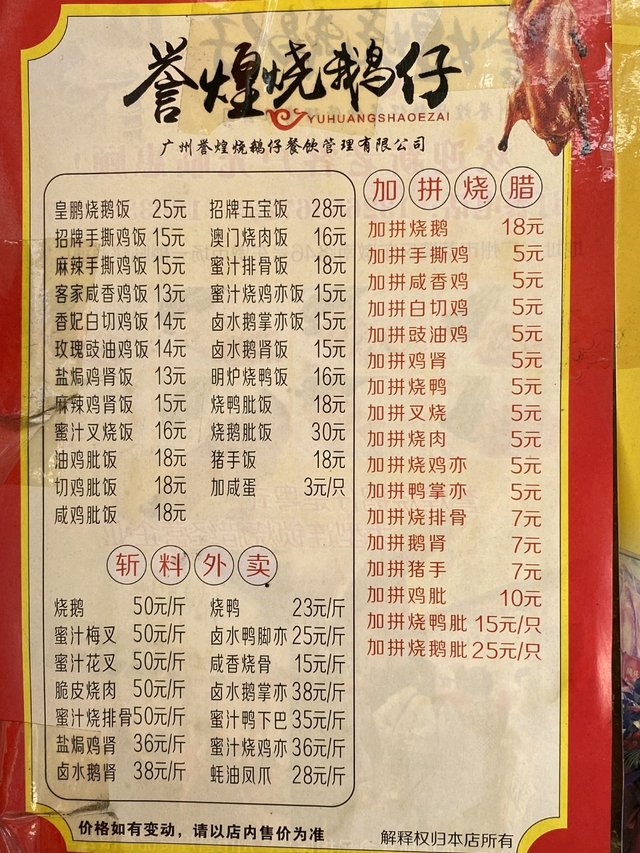 誉煌烧鹅仔
YUHUANGSHAOEZAI
广州誉煌烧鹅仔餐饮管理有限公司
皇鹏烧鹅饭 25元
招牌手撕鸡饭 15元
麻辣手撕鸡饭 15元
客家咸香鸡饭 13元
香妃白切鸡饭 14元
玫瑰豉油鸡饭 14元
盐焗鸡肾饭 13元
麻辣鸡肾饭 15元
蜜汁叉烧饭 16元
油鸡肶饭 18元
切鸡肶饭 18元
咸鸡肶饭 18元
招牌五宝饭 28元
澳门烧肉饭 16元
蜜汁排骨饭 18元
蜜汁烧鸡亦饭 15元
卤水鹅掌亦饭 15元
卤水鹅肾饭 15元
明炉烧鸭饭 16元
烧鸭肶饭 18元
烧鹅肶饭 30元
猪手饭 18元
加咸蛋 3元/只
斩料外卖
烧鹅 50元/斤
蜜汁梅叉 50元/斤
蜜汁花叉 50元/斤
脆皮烧肉 50元/斤
蜜汁烧排骨 50元/斤
盐焗鸡肾 36元/斤
卤水鹅肾 38元/斤
烧鸭 23元/斤
卤水鸭脚亦 25元/斤
咸香烧骨 15元/斤
卤水鹅掌亦 38元/斤
蜜汁鸭下巴 35元/斤
蜜汁烧鸡亦 36元/斤
蚝油凤爪 28元/斤
加拼烧腊
加拼烧鹅 18元
加拼手撕鸡 5元
加拼咸香鸡 5元
加拼白切鸡 5元
加拼豉油鸡 5元
加拼鸡肾 5元
加拼烧鸭 5元
加拼叉烧 5元
加拼烧肉 5元
加拼烧鸡亦 5元
加拼鸭掌亦 5元
加拼烧排骨 7元
加拼鹅肾 7元
加拼猪手 7元
加拼鸡肶 10元
加拼烧鸭肶 15元/只
加拼烧鹅肶 25元/只
价格如有变动，请以店内售价为准
解释权归本店所有